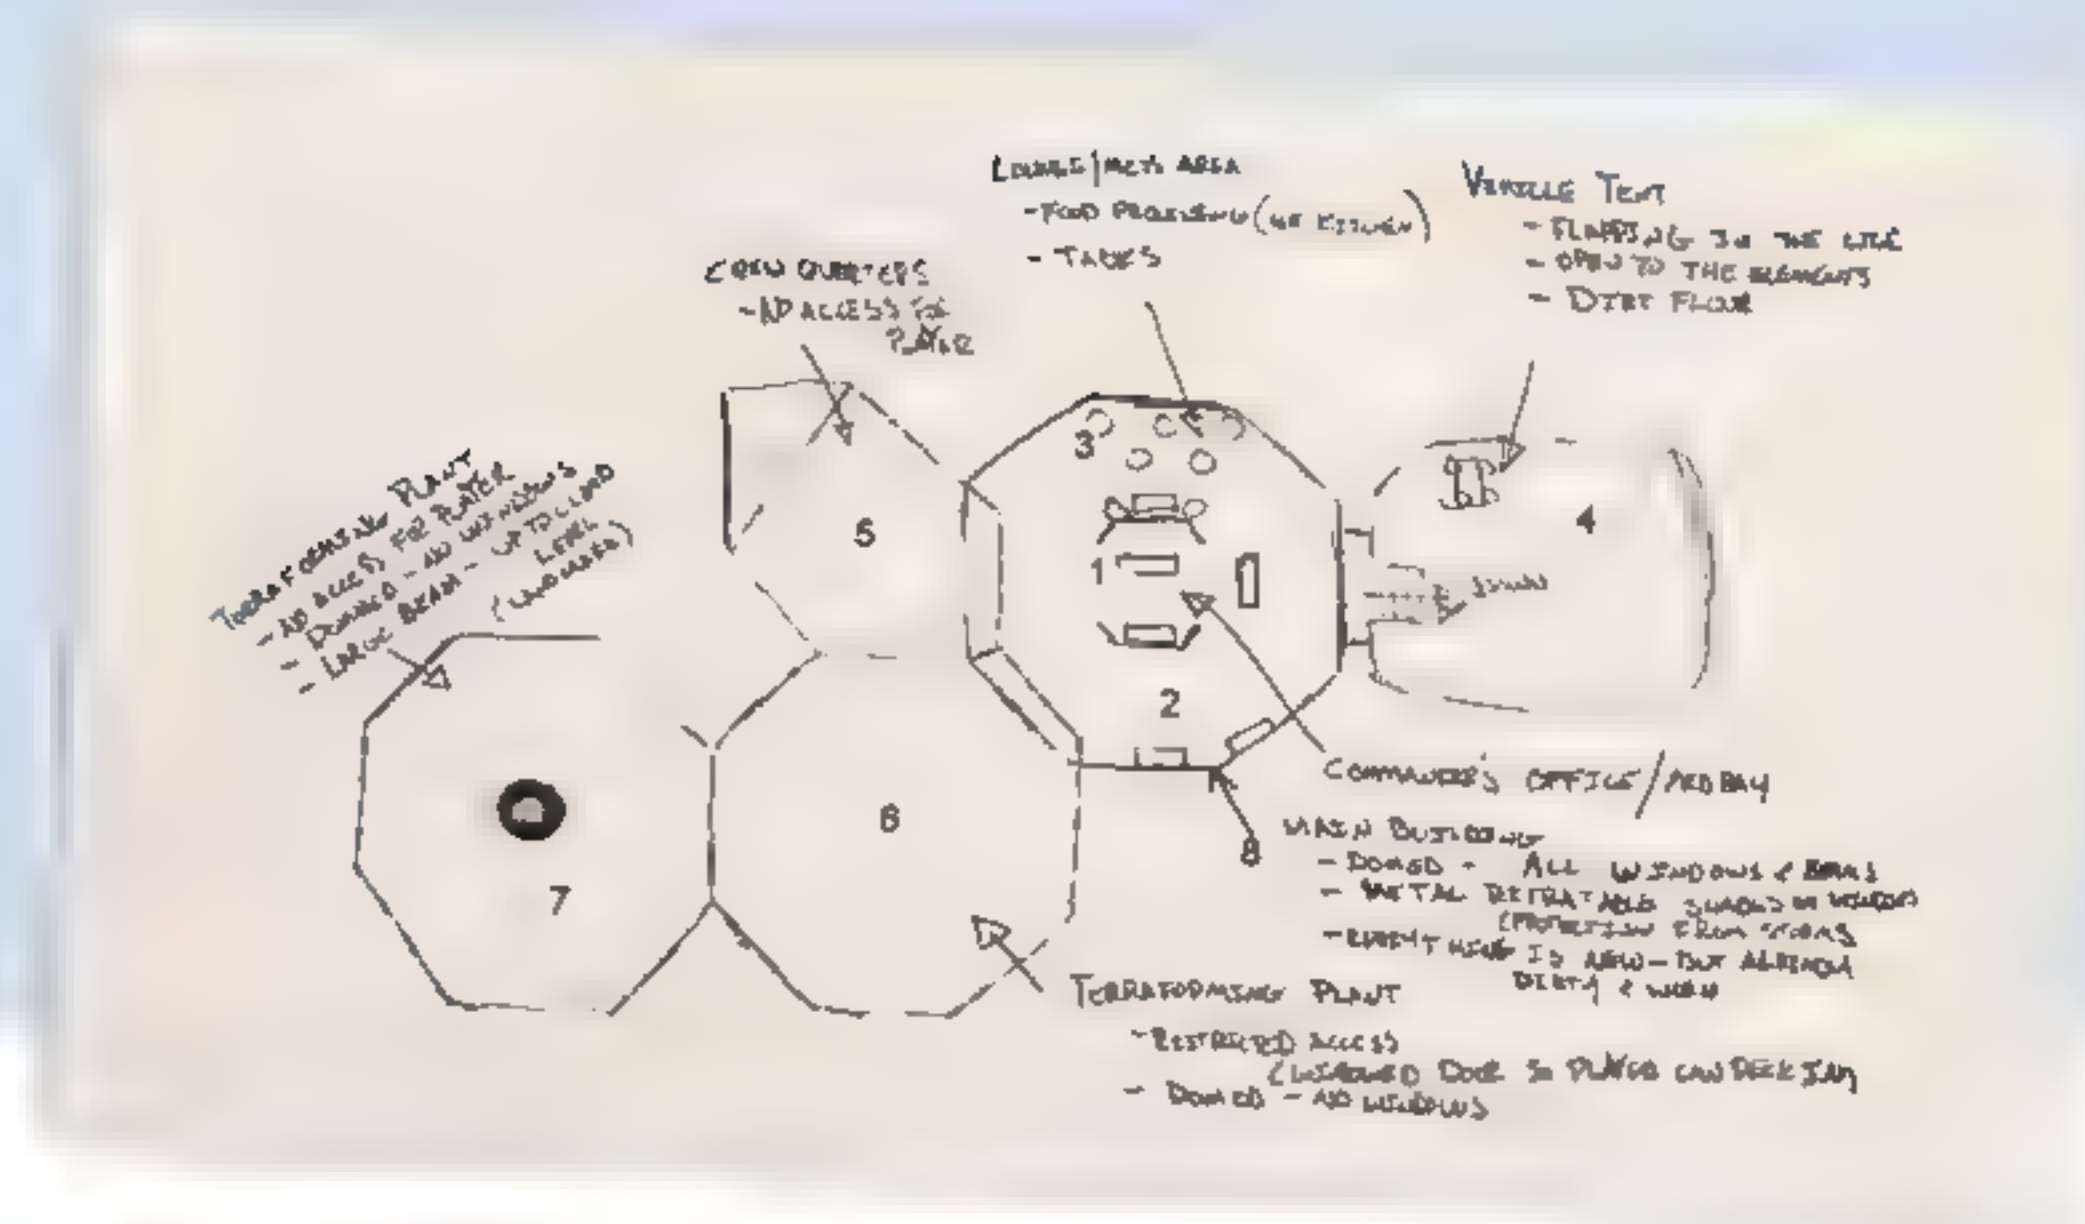 LOUNGE/MESS AREA
- FOOD PROCESSING (NO KITCHEN)
- TABLES
VEHICLE TENT
- FLAPPING IN THE
- OPEN TO THE ELEMENTS
- DIRT FLOOR
CREW QUARTERS
- NO ACCESS FOR
PLAYER
TERRAFORMING PLANT
- NO ACCESS FOR PLAYER
- DOMED - NO WINDOWS
- LARGE BEAM - UP TO CLOUD
LEVEL
(LANDMARK)
3
5
4
1
DOWN
2
6
7
8
COMMANDER'S OFFICE/MEDBAY
MAIN BUILDING
- DOMED - ALL WINDOWS &
- METAL RETRACTABLE SHADES ON WINDOWS
(PROTECTION FROM STORMS
- EVERYTHING IS NEW - BUT ALREADY
DIRTY & WORN
TERRAFORMING PLANT
- RESTRICTED ACCESS
(WINDOWED DOOR SO PLAYER CAN PEEK IN)
- DOMED - NO WINDOWS